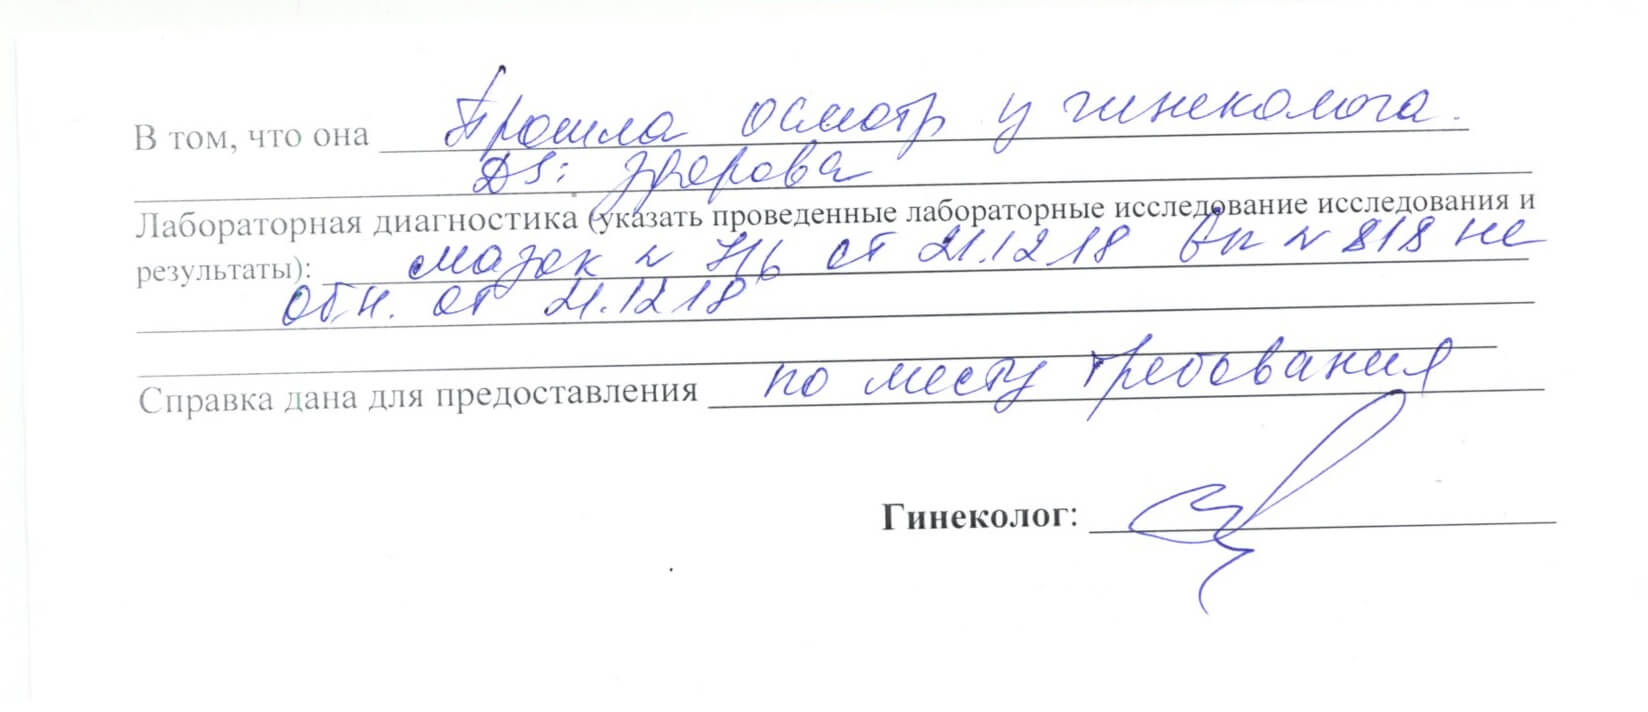 В том, что она прошла осмотр у гинеколога.
DS: здорова
Лабораторная диагностика (указать проведенные лабораторные исследование исследования и
результаты): мазок N от 21.12.18 N 818 не
обн. от 21.12.18
Справка дана для предоставления по месту требования
Гинеколог: